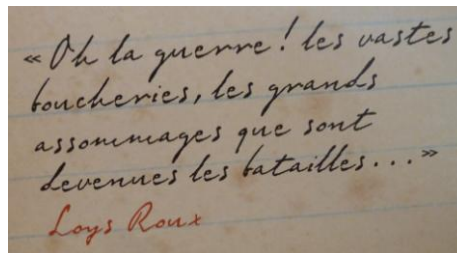 « Oh la guerre ! les vastes
boucheries, les grands
assommages que sont
devenues les batailles... »
Loys Roux